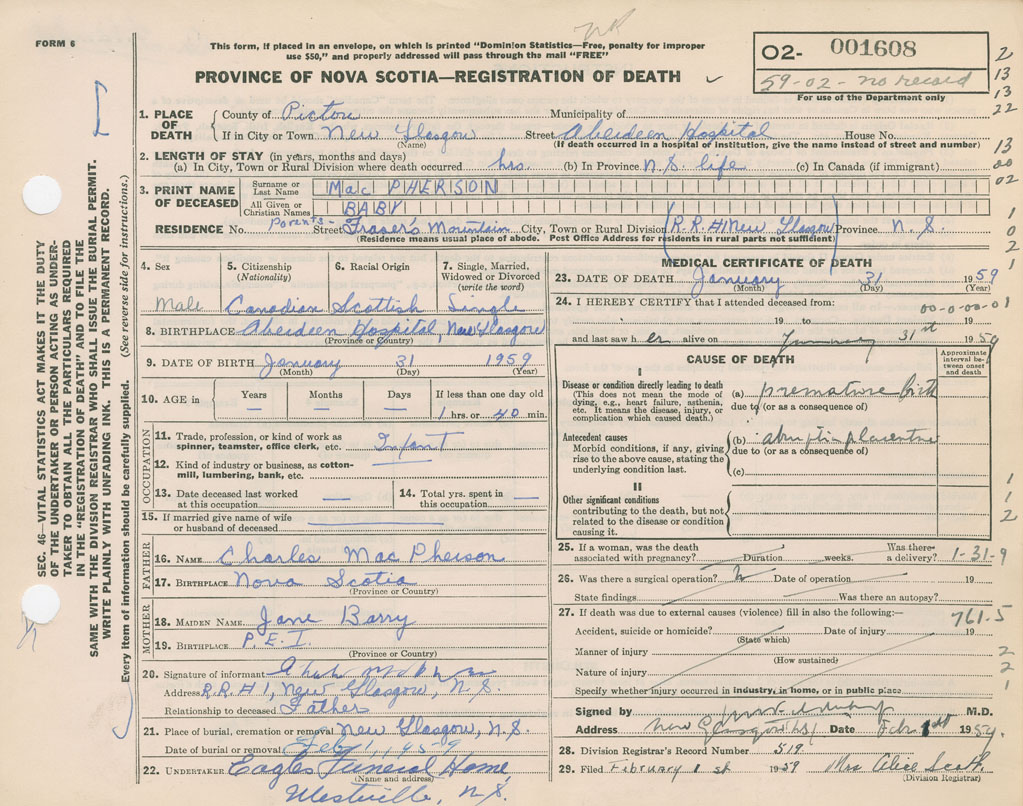 FORM 6
This form, if placed in an envelope, on which is printed "Dominion Statistics—Free, penalty for improper
use $50," and properly addressed will pass through the mail "FREE"
PROVINCE OF NOVA SCOTIA—REGISTRATION OF DEATH
02- 001608
59-02-no record
For use of the Department only
SEC. 46—VITAL STATISTICS ACT MAKES IT THE DUTY
OF THE UNDERTAKER OR PERSON ACTING AS UNDER-
TAKER TO OBTAIN ALL THE PARTICULARS REQUIRED
IN THE "REGISTRATION OF DEATH" AND TO FILE THE
SAME WITH THE DIVISION REGISTRAR WHO SHALL ISSUE THE BURIAL PERMIT.
WRITE PLAINLY WITH UNFADING INK. THIS IS A PERMANENT RECORD.
Every item of information should be carefully supplied. (See reverse side for instructions.)
1. PLACE OF DEATH
County of Pictou Municipality of
If in City or Town New Glasgow Street Aberdeen Hospital House No.
(Name) (If death occurred in a hospital or institution, give the name instead of street and number)
2. LENGTH OF STAY (in years, months and days)
(a) In City, Town or Rural Division where death occurred hrs. (b) In Province N.S. life (c) In Canada (if immigrant)
3. PRINT NAME OF DECEASED
Surname or Last Name Mac PHERSON
All Given or Christian Names BABY
RESIDENCE No. Parents- Street Fraser's Mountain City, Town or Rural Division (R.R.#1 New Glasgow) Province N.S.
(Residence means usual place of abode. Post Office Address for residents in rural parts not sufficient)
4. Sex
Male
5. Citizenship
(Nationality)
Canadian
6. Racial Origin
Scottish
7. Single, Married, Widowed or Divorced
(write the word)
Single
8. BIRTHPLACE Aberdeen Hospital, New Glasgow
(Province or Country)
9. DATE OF BIRTH January 31 1959
(Month) (Day) (Year)
10. AGE in Years Months Days If less than one day old
1 hrs. or 40 min.
OCCUPATION
11. Trade, profession, or kind of work as
spinner, teamster, office clerk, etc. Infant
12. Kind of industry or business, as cotton-
mill, lumbering, bank, etc.
13. Date deceased last worked
at this occupation
14. Total yrs. spent in
this occupation
15. If married give name of wife
or husband of deceased
FATHER
16. NAME Charles MacPherson
17. BIRTHPLACE Nova Scotia
(Province or Country)
MOTHER
18. MAIDEN NAME Jane Barry
19. BIRTHPLACE P.E.I.
(Province or Country)
20. Signature of informant
Address R.R.#1, New Glasgow, N.S.
Relationship to deceased Father
21. Place of burial, cremation or removal New Glasgow, N.S.
Date of burial or removal Feb. 1, 1959
22. UNDERTAKER Eagles Funeral Home,
(Name and address)
Westville, N.S.
MEDICAL CERTIFICATE OF DEATH
23. DATE OF DEATH January 31 1959
(Month) (Day) (Year)
24. I HEREBY CERTIFY that I attended deceased from:
00-0-00-01
19 to 19
and last saw h er alive on January 31st 1959
CAUSE OF DEATH
Approximate interval between onset and death
I
Disease or condition directly leading to death
(This does not mean the mode of
dying, e.g., heart failure, asthenia,
etc. It means the disease, injury, or
complication which caused death.)
(a) premature birth
due to (or as a consequence of)
Antecedent causes
Morbid conditions, if any, giving
rise to the above cause, stating the
underlying condition last.
(b) abruptio placentae
due to (or as a consequence of)
(c)
II
Other significant conditions
contributing to the death, but not
related to the disease or condition
causing it.
25. If a woman, was the death
associated with pregnancy? Duration weeks. Was there
a delivery?
1-31-9
26. Was there a surgical operation? Date of operation 19
State findings Was there an autopsy?
27. If death was due to external causes (violence) fill in also the following:—
761.5
Accident, suicide or homicide? Date of injury 19
(State which)
Manner of injury
(How sustained)
Nature of injury
Specify whether injury occurred in industry, in home, or in public place
Signed by M.D.
Address New Glasgow NS Date Feb. 1st 1959.
28. Division Registrar's Record Number 519
29. Filed February 1st 1959 Mrs Alice Scott
(Division Registrar)
2
13
13
22
13
00
02
1
0
2
1
1
1
2
2
2
1